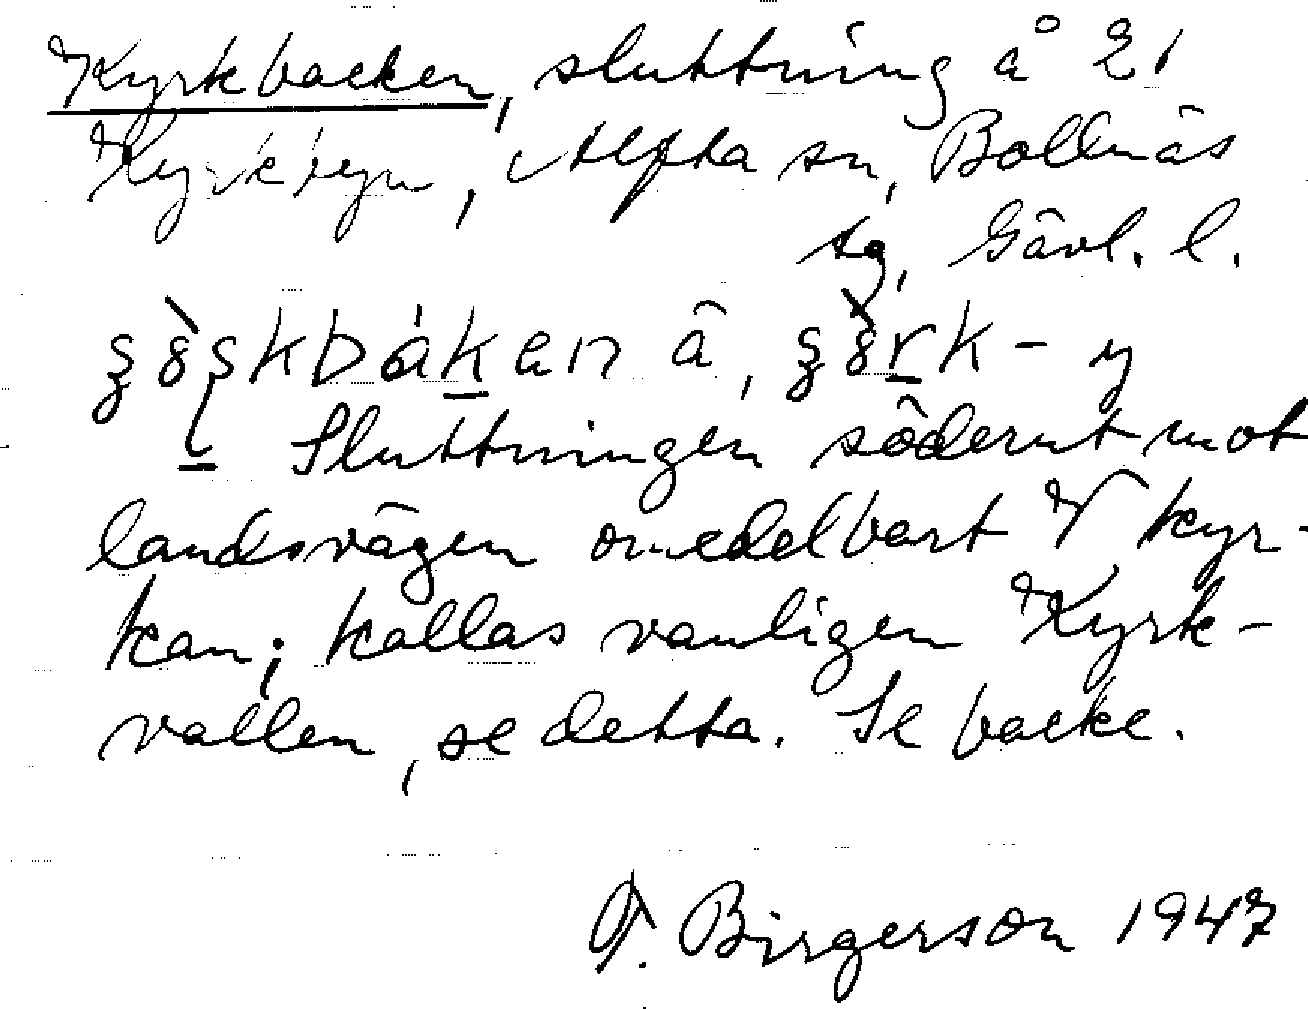 Kyrkbacken, sluttning å 21
Kyrkbyn, Alfta sn, Bollnäs
tg, Gävl. l.
Sluttningen söderut mot
landsvägen omedelbart V kyr-
kan; kallas vanligen Kyrk-
vallen, se detta. Se backe.
Birgerson 1947